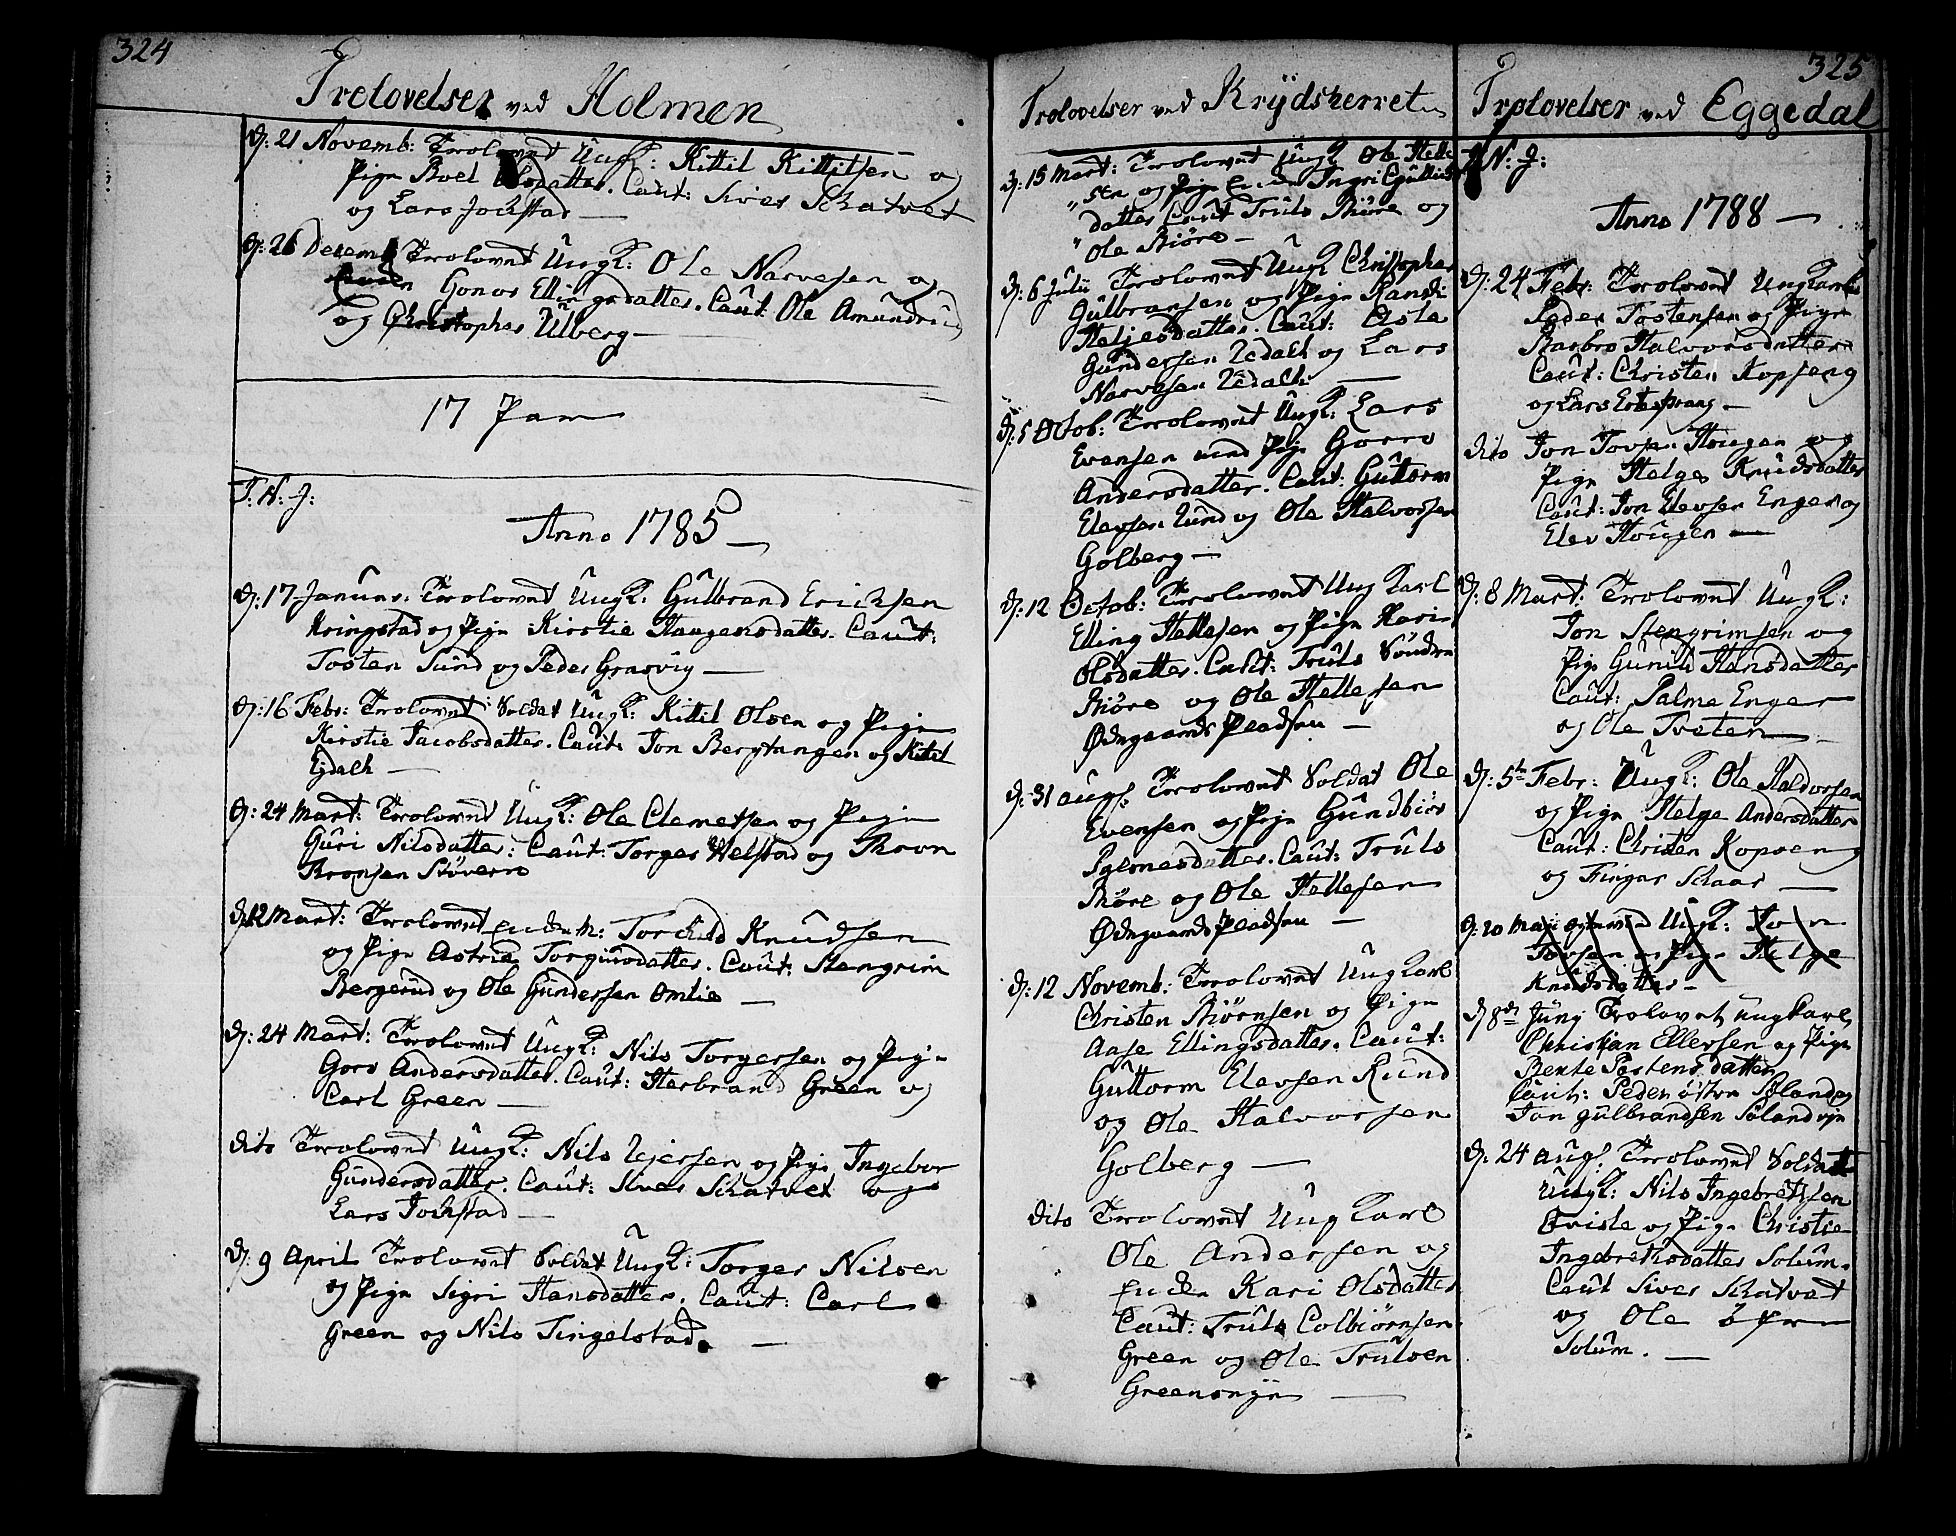 324
Trolovelser ved Holmen
D: 21 Novemb: Trolovet Ungk: Kittil Kittilsen og
Pige Boel Olsdatter. Caut: Siver Schatvet
og Lars Jockstad —
D: 26 Decemb Trolovet Ungk: Ole Narvesen og
Enken Gonor Ellingsdatter. Caut: Ole Amundrud
og Christopher Ulberg —
17 Par
I. N. J:
Anno 1785 —
D: 17 Januar: Trolovet Ungk: Gulbrand Ericksen
Kringstad og Pige Kirstie Haagensdatter. Caut:
Tosten Sund og Peder Grasvig —
D: 16 Febr: Trolovet Soldat Ungk: Kittil Olsen og Pige
Kirstie Jacobsdatter. Caut: Jon Bergstangen og Kittil
Ejdalh —
D: 24 Mart: Trolovet Ungk: Ole Clemetsen og Pige
Guri Nilsdatter: Caut: Torger Welstad og Thron
Thronsen Støvern
D: 12 Mart: Trolovet Enkem: Torchild Knudsen
og Pige Astrid Torgiusdatter. Caut: Stengrim
Bergerud og Ole Gundersen Omlie —
D: 24 Mart: Trolovet Ungk: Nils Torgersen og Pige
Goro Andersdatter. Caut: Herbrand Green og
Carl Green —
dito Trolovet Ungk: Nils Ejersen og Pige Ingebor
Gundersdatter. Caut: Siver Schatvet og
Lars Jockstad —
D: 9 April Trolovet Soldat Ungk: Torger Nilsen
og Pige Sigri Hansdatter. Caut: Carl
Green og Nils Tingelstad. —
Trolovelser ved Krydsherret
D: 15 Mart: Trolovet Ungk Ole Helle
sen og Pige Ingri
datter Caut Truls Biøre og
Ole Biøre —
D: 6 Julii Trolovet Ungk Christopher
Gulbransen og Pige Randi
Heljesdatter. Caut: Asle
Gundersen og Lars
Narvesen —
D: 5 Octob: Trolovet Ungk: Lars
Evensen und Pige Gorro
Andersdatter. Caut: Guttorm
Elevsen Lund og Ole Halvorsen
Golberg —
D: 12 Octob: Trolovet Ung Karl
Elling Hellesen og Pige Kari
Olsdatter. Caut: Truls Søndre
Biøre og Ole Hellesen
Ødegaards Pladsen —
D: 31 Aug: Trolovet Soldat Ole
Evensen og Pige Gundbiør
Sylmesdatter. Caut: Truls
Biøre og Ole Hellesen
Ødegaards Pladsen —
D: 12 Novemb: Trolovet Ung Karl
Christen Biørnsen og Pige
Aase Ellingsdatter. Caut:
Guttorm Elevsen Rund
og Ole Halvorsen
Golberg —
dito Trolovet Ung Karl
Ole Andersen og
Enken Kari Olsdatter
Caut: Truls Colbiørnsen
Green og Ole Trulsen
Greenseje —
325
Trolovelser ved Eggedal
I. N: J:
Anno 1788 —
D: 24 Febr: Trolovet Ungkarl
Peder Tostensen og Pige
Barbro Halvorsdatter
Caut: Christen Kopseng
og Lars —
dito Jon Tovsen Hougen og
Pige Helge Knudsdatter
Caut: Jon Elevsen Enger og
Elev Hougen —
D: 8 Mart: Trolovet Ungk:
Jon Stengrimsen og
Pige Gunild Hansdatter
Caut: Palme Enger
og Ole Tveten —
D: 5te Febr: Ungk: Ole Haldorsen
og Pige Helge Andersdatter
Caut: Christen Kopseng
og Fingar Skaar —
D: 20 Maji Ungk: Jon
Tovsen og Pige Helge
Knudsdatter —
D 8de Juny Trolovet ungkarl
Christian Ellevsen og Pige
Bente Postensdatter
Caut: Peder østre Søland og
Jon gulbrandsen Sølandeje
D. 24 Aug: Trolovet Soldat
Ungk: Nils Ingebretsen
og Pige Christie
Ingebrethsdatter Solum.
Caut Siver Schatvet
og Ole Øfre
Solum. —